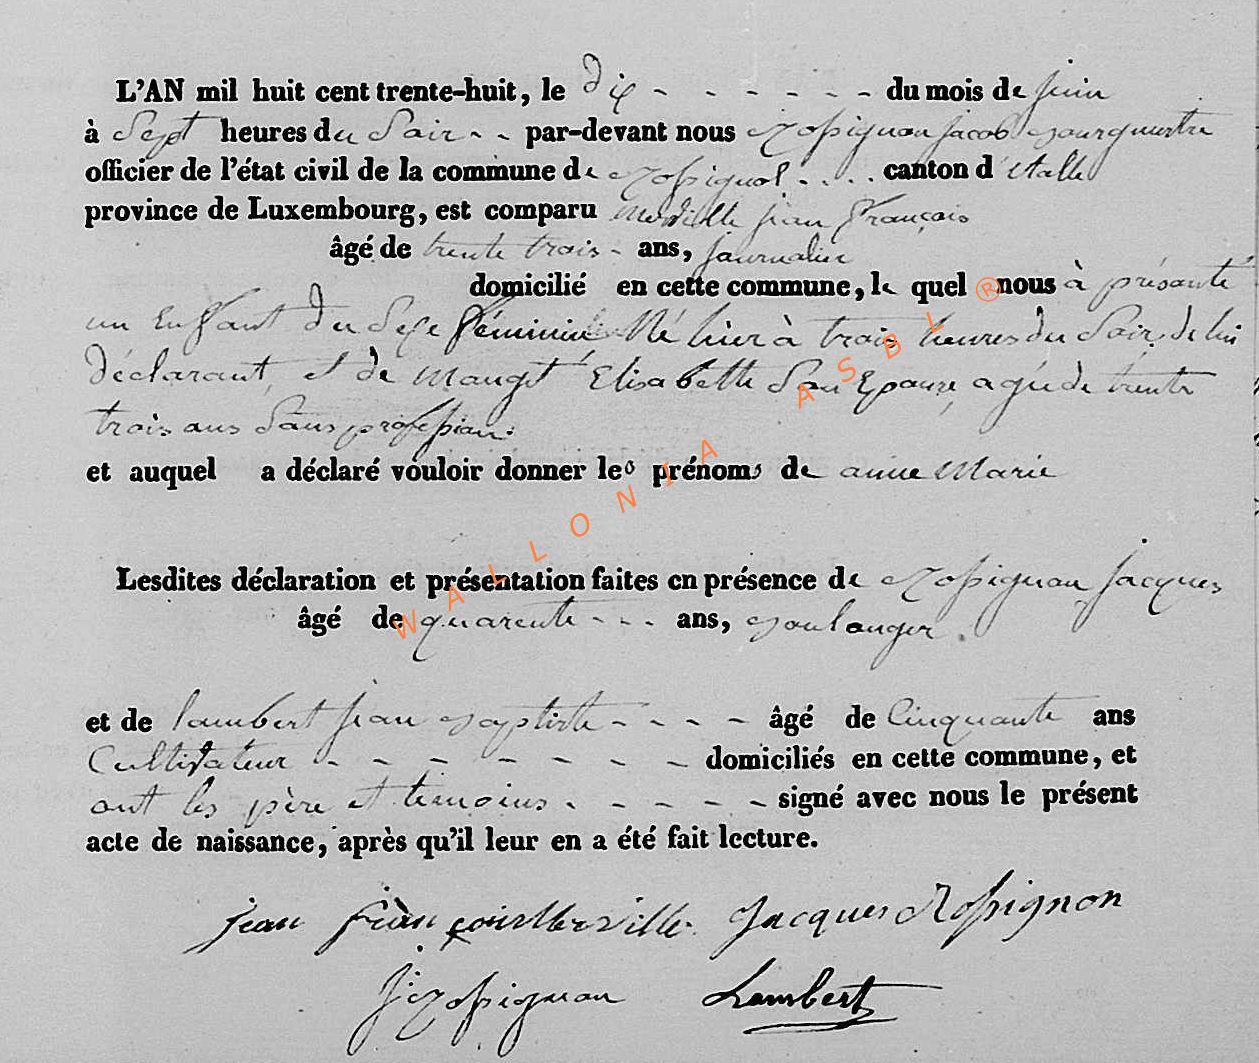 L'AN mil huit cent trente-huit, le dix - - - - - - du mois de juin
à Sept heures du Soir - - par-devant nous Rossignon jacob Bourguestre
officier de l'état civil de la commune de Rossignol . . . . canton d'étalle
province de Luxembourg, est comparu jean françois
âgé de trente trois - ans, journalier
domicilié en cette commune, le quel nous à présanté
un Enffant du Sexe féminin Né hier à trois heures du Soir, de lui
déclarant, et de Élisabette Son Epouze, agée de trente
trois ans Sans profession.
et auquel a déclaré vouloir donner les prénoms de anne Marie
Lesdites déclaration et présentation faites en présence de Rossignon Jacques
âgé de quarente - - - ans, Boulanger.
et de lambert jean Baptiste - - - - âgé de Cinquante ans
Cultivateur - - - - - - - - domiciliés en cette commune, et
ont les père et temoins - - - - - signé avec nous le présent
acte de naissance, après qu'il leur en a été fait lecture.
jean françois Jacques Rossignon
J Rossignon Lambert
WALLONIA ASBL ®